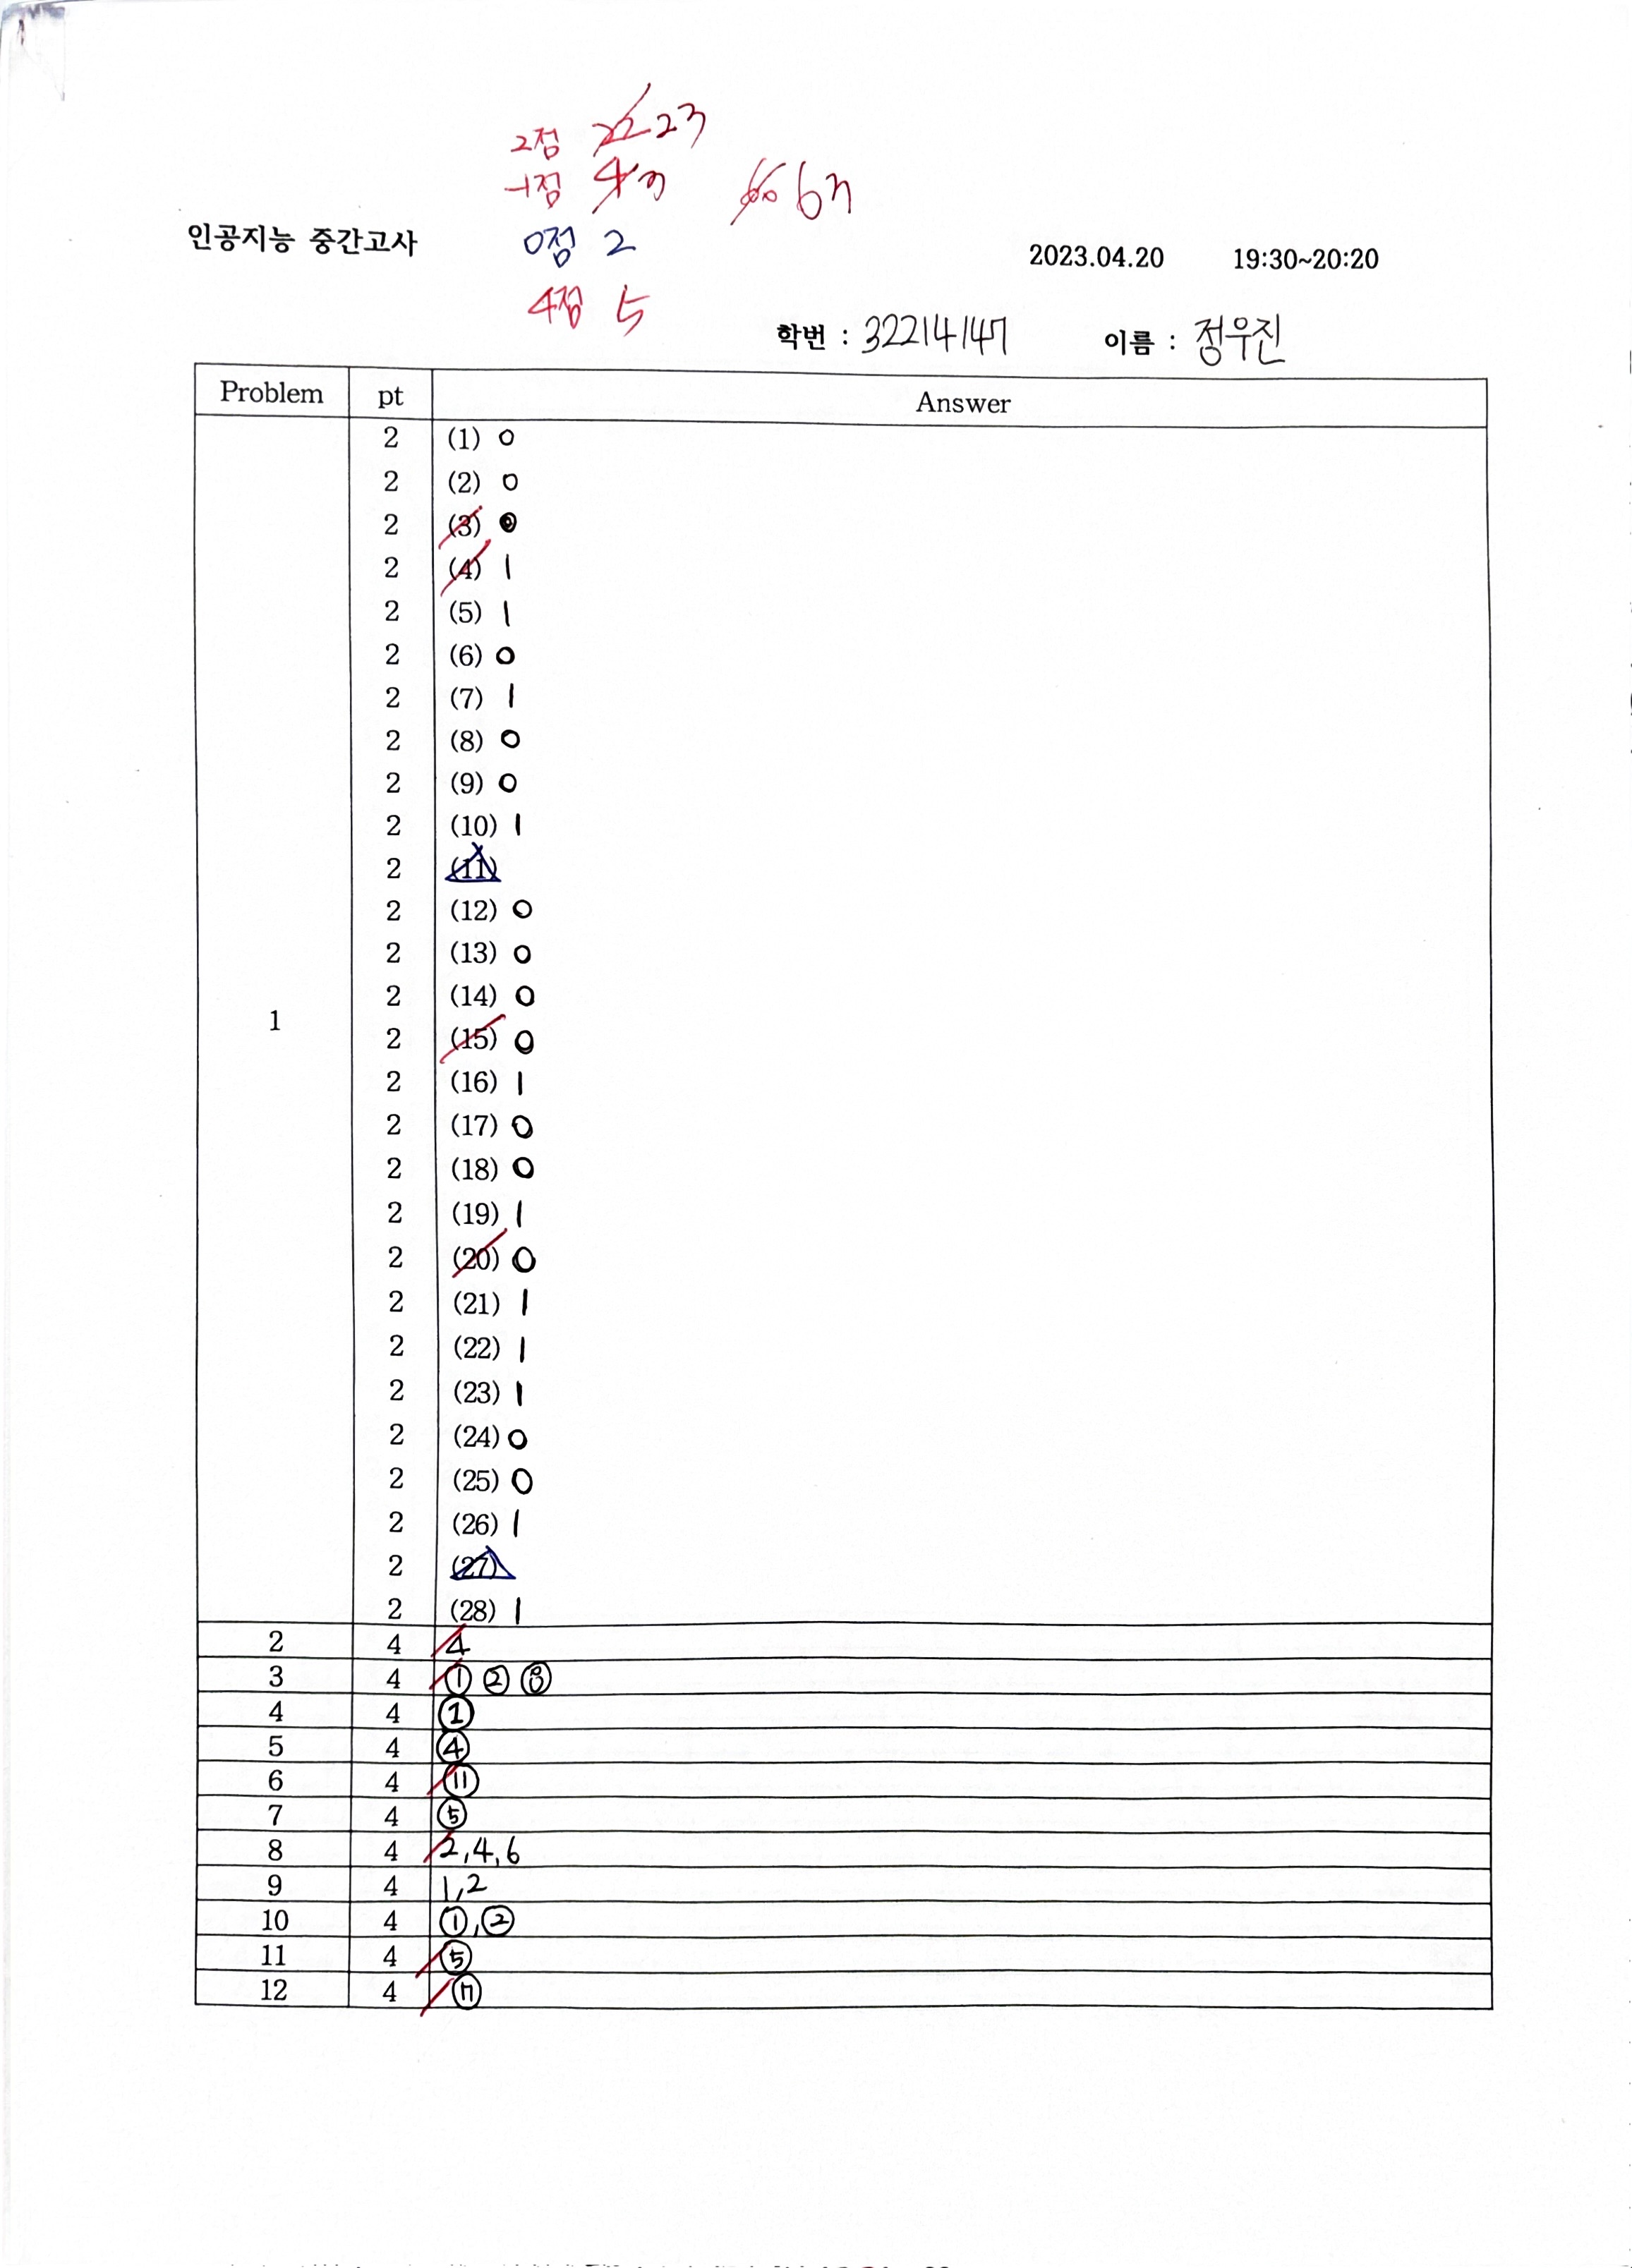 2점 22 23
-1점 4 3 66 67
인공지능 중간고사 0점 2 2023.04.20 19:30~20:20
4점 5
학번 : 32214147 이름 : 정우진
Problem pt Answer
2 (1) 0
2 (2) 0
2 (3) 0
2 (4) 1
2 (5) 1
2 (6) 0
2 (7) 1
2 (8) 0
2 (9) 0
2 (10) 1
2 (11)
2 (12) 0
2 (13) 0
2 (14) 0
1
2 (15) 0
2 (16) 1
2 (17) 0
2 (18) 0
2 (19) 1
2 (20) 0
2 (21) 1
2 (22) 1
2 (23) 1
2 (24) 0
2 (25) 0
2 (26) 1
2 (27)
2 (28) 1
2 4 4
3 4 ① ② ⑧
4 4 ①
5 4 ④
6 4 ⑪
7 4 ⑤
8 4 2,4,6
9 4 1,2
10 4 ①,②
11 4 ⑤
12 4